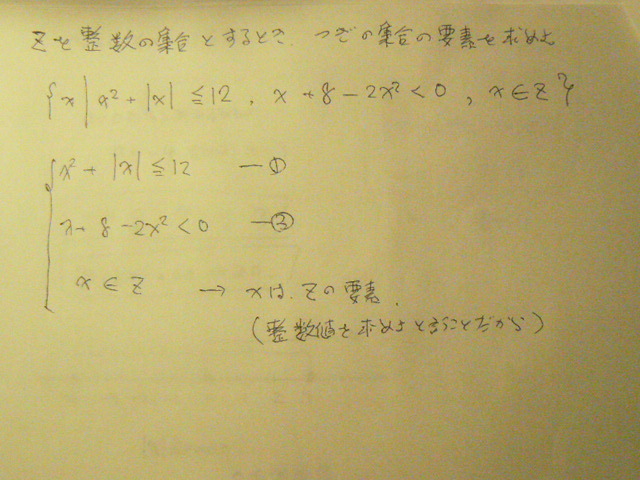 Zを整数の集合とするとき、つぎの集合の要素を求めよ
{x | x²+|x|≦12, x+8-2x²<0, x∈Z}
x²+|x|≦12 ―①
x+8-2x²<0 ―②
x∈Z → xは、Zの要素.
(整数値を求めよと言うことだから)